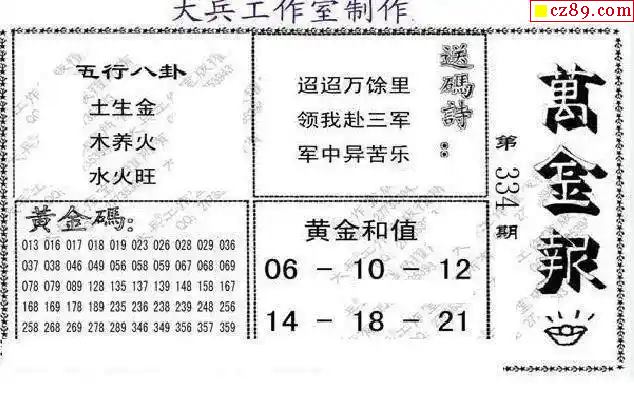 大兵工作室制作
cz89.com
五行八卦
土生金
木养火
水火旺
送碼詩：
迢迢万馀里
领我赴三军
军中异苦乐
萬金報
第334期
黃金碼：
013 016 017 018 019 023 026 028 029 036
037 038 046 048 049 056 058 067 068 069
078 079 089 128 135 137 139 148 157 167
168 169 178 189 235 236 238 239 248 256
258 268 269 278 289 346 347 356 357 359
黄金和值
06 - 10 - 12
14 - 18 - 21